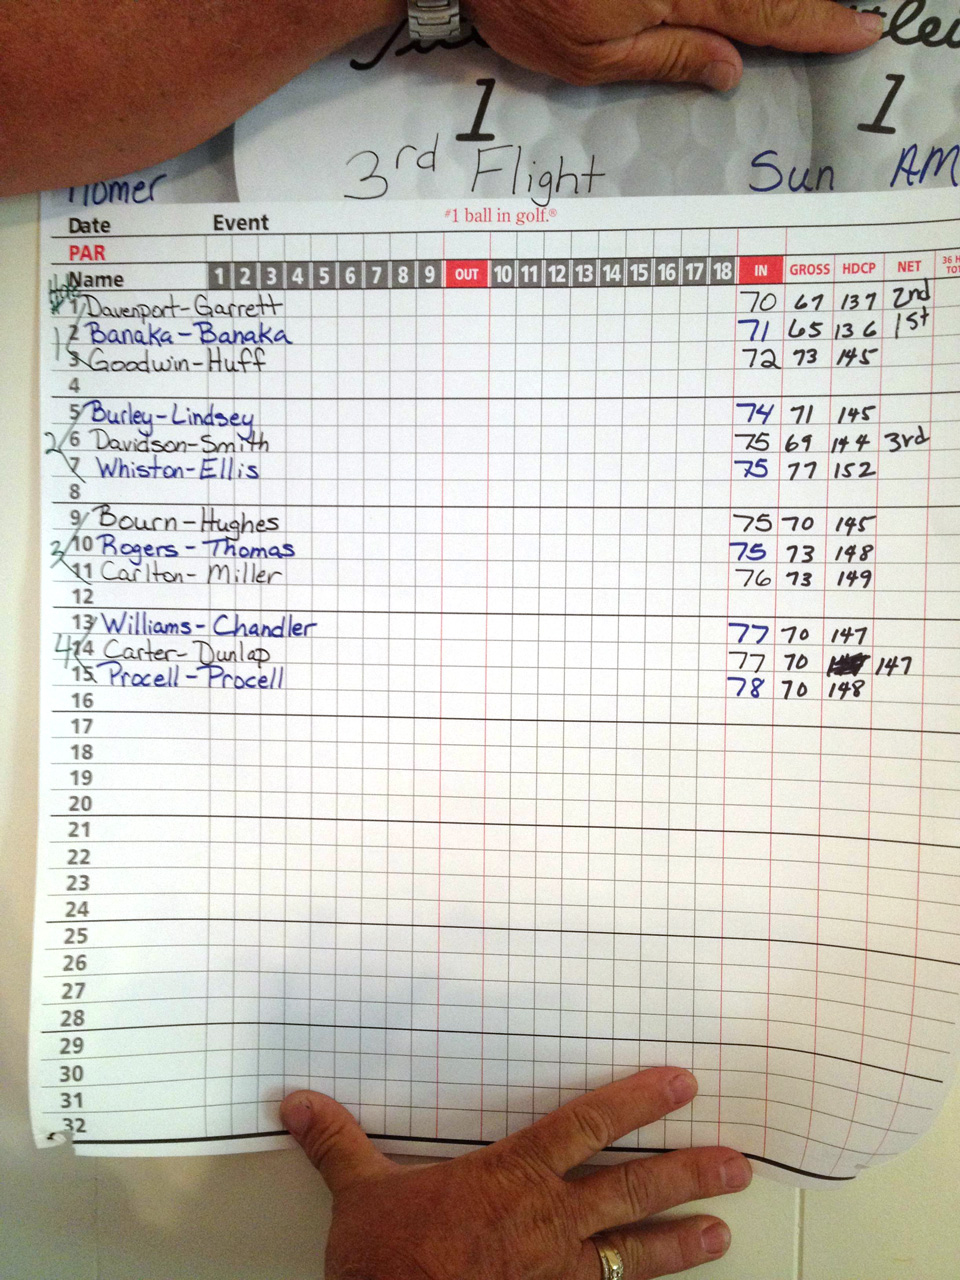 1 1
3rd Flight Sun AM
Homer
Date Event #1 ball in golf.®
PAR
Name 1 2 3 4 5 6 7 8 9 OUT 10 11 12 13 14 15 16 17 18 IN GROSS HDCP NET 36 H
1 Davenport-Garrett 70 67 137 2nd
2 Banaka-Banaka 71 65 136 1st
3 Goodwin-Huff 72 73 145
4
5 Burley-Lindsey 74 71 145
2 6 Davidson-Smith 75 69 144 3rd
7 Whiston-Ellis 75 77 152
8
9 Bourn-Hughes 75 70 145
3 10 Rogers-Thomas 75 73 148
11 Carlton-Miller 76 73 149
12
13 Williams-Chandler 77 70 147
4 14 Carter-Dunlap 77 70 147
15 Procell-Procell 78 70 148
16
17
18
19
20
21
22
23
24
25
26
27
28
29
30
31
32